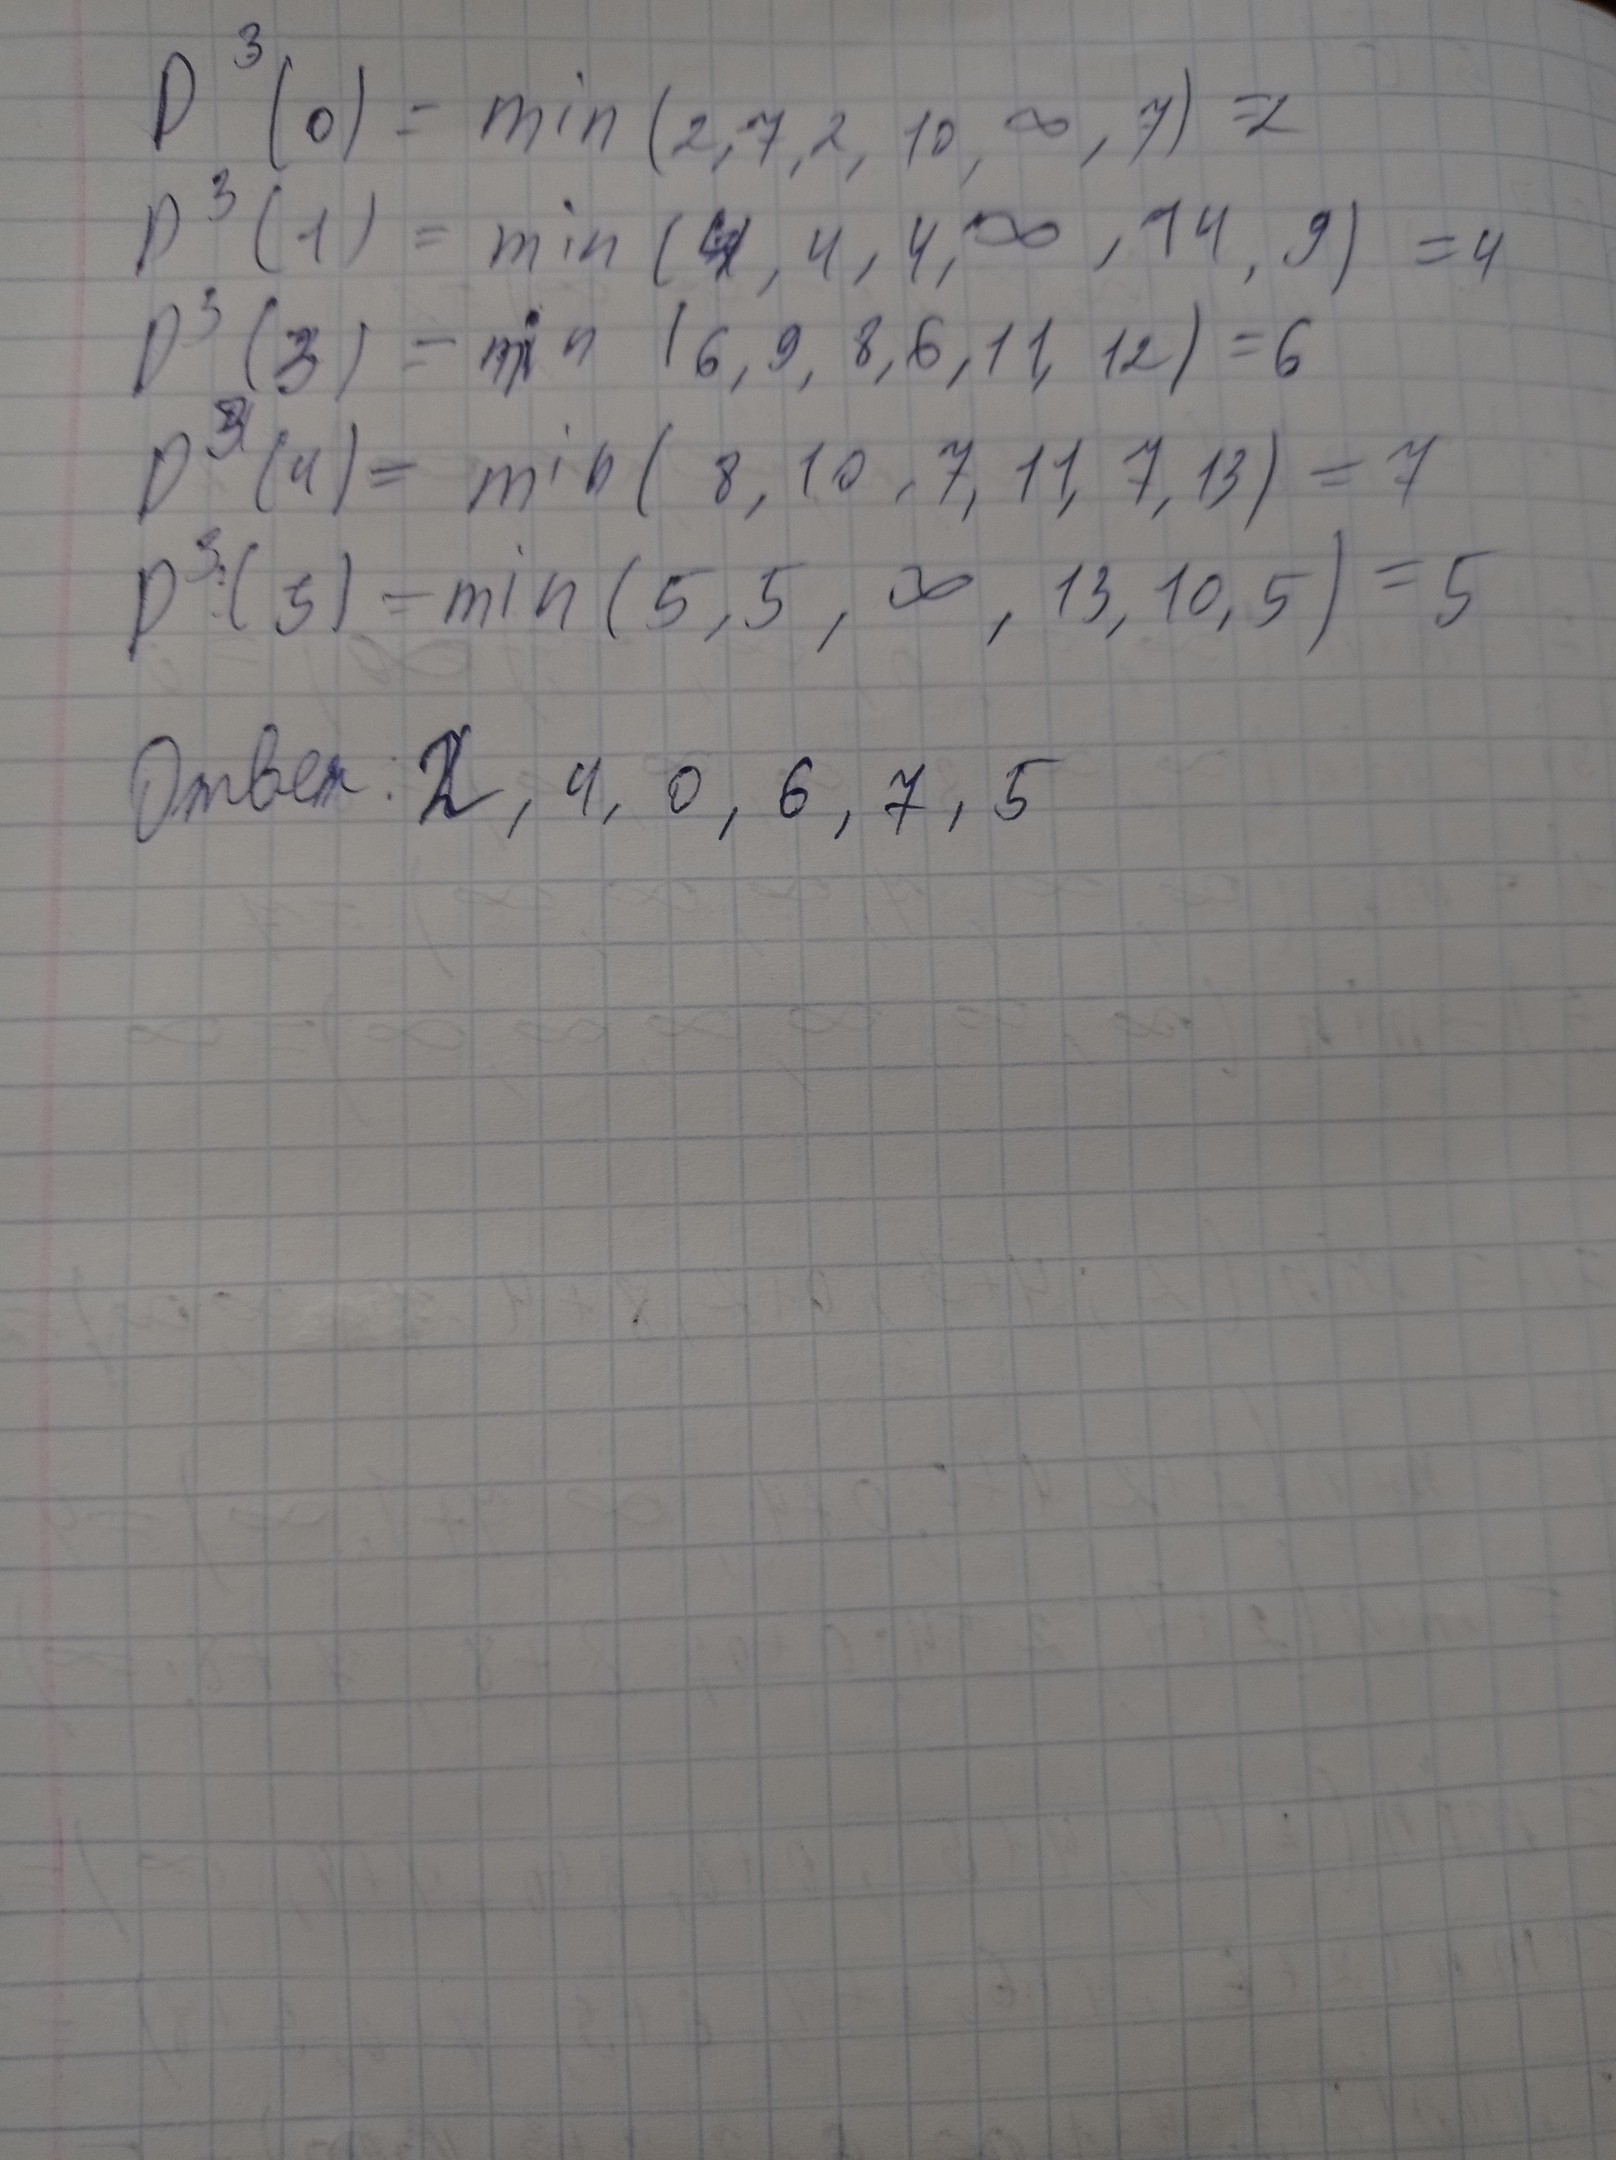 D³(0) = min(2,7,2, 10, ∞, 7) = 2
D³(1) = min(4, 4, 4, ∞, 14, 9) = 4
D³(3) = min (6, 9, 8, 6, 11, 12) = 6
D³(4) = min(8, 10, 7, 11, 7, 13) = 7
D³(5) = min(5, 5, ∞, 13, 10, 5) = 5
Ответ: 2, 4, 0, 6, 7, 5